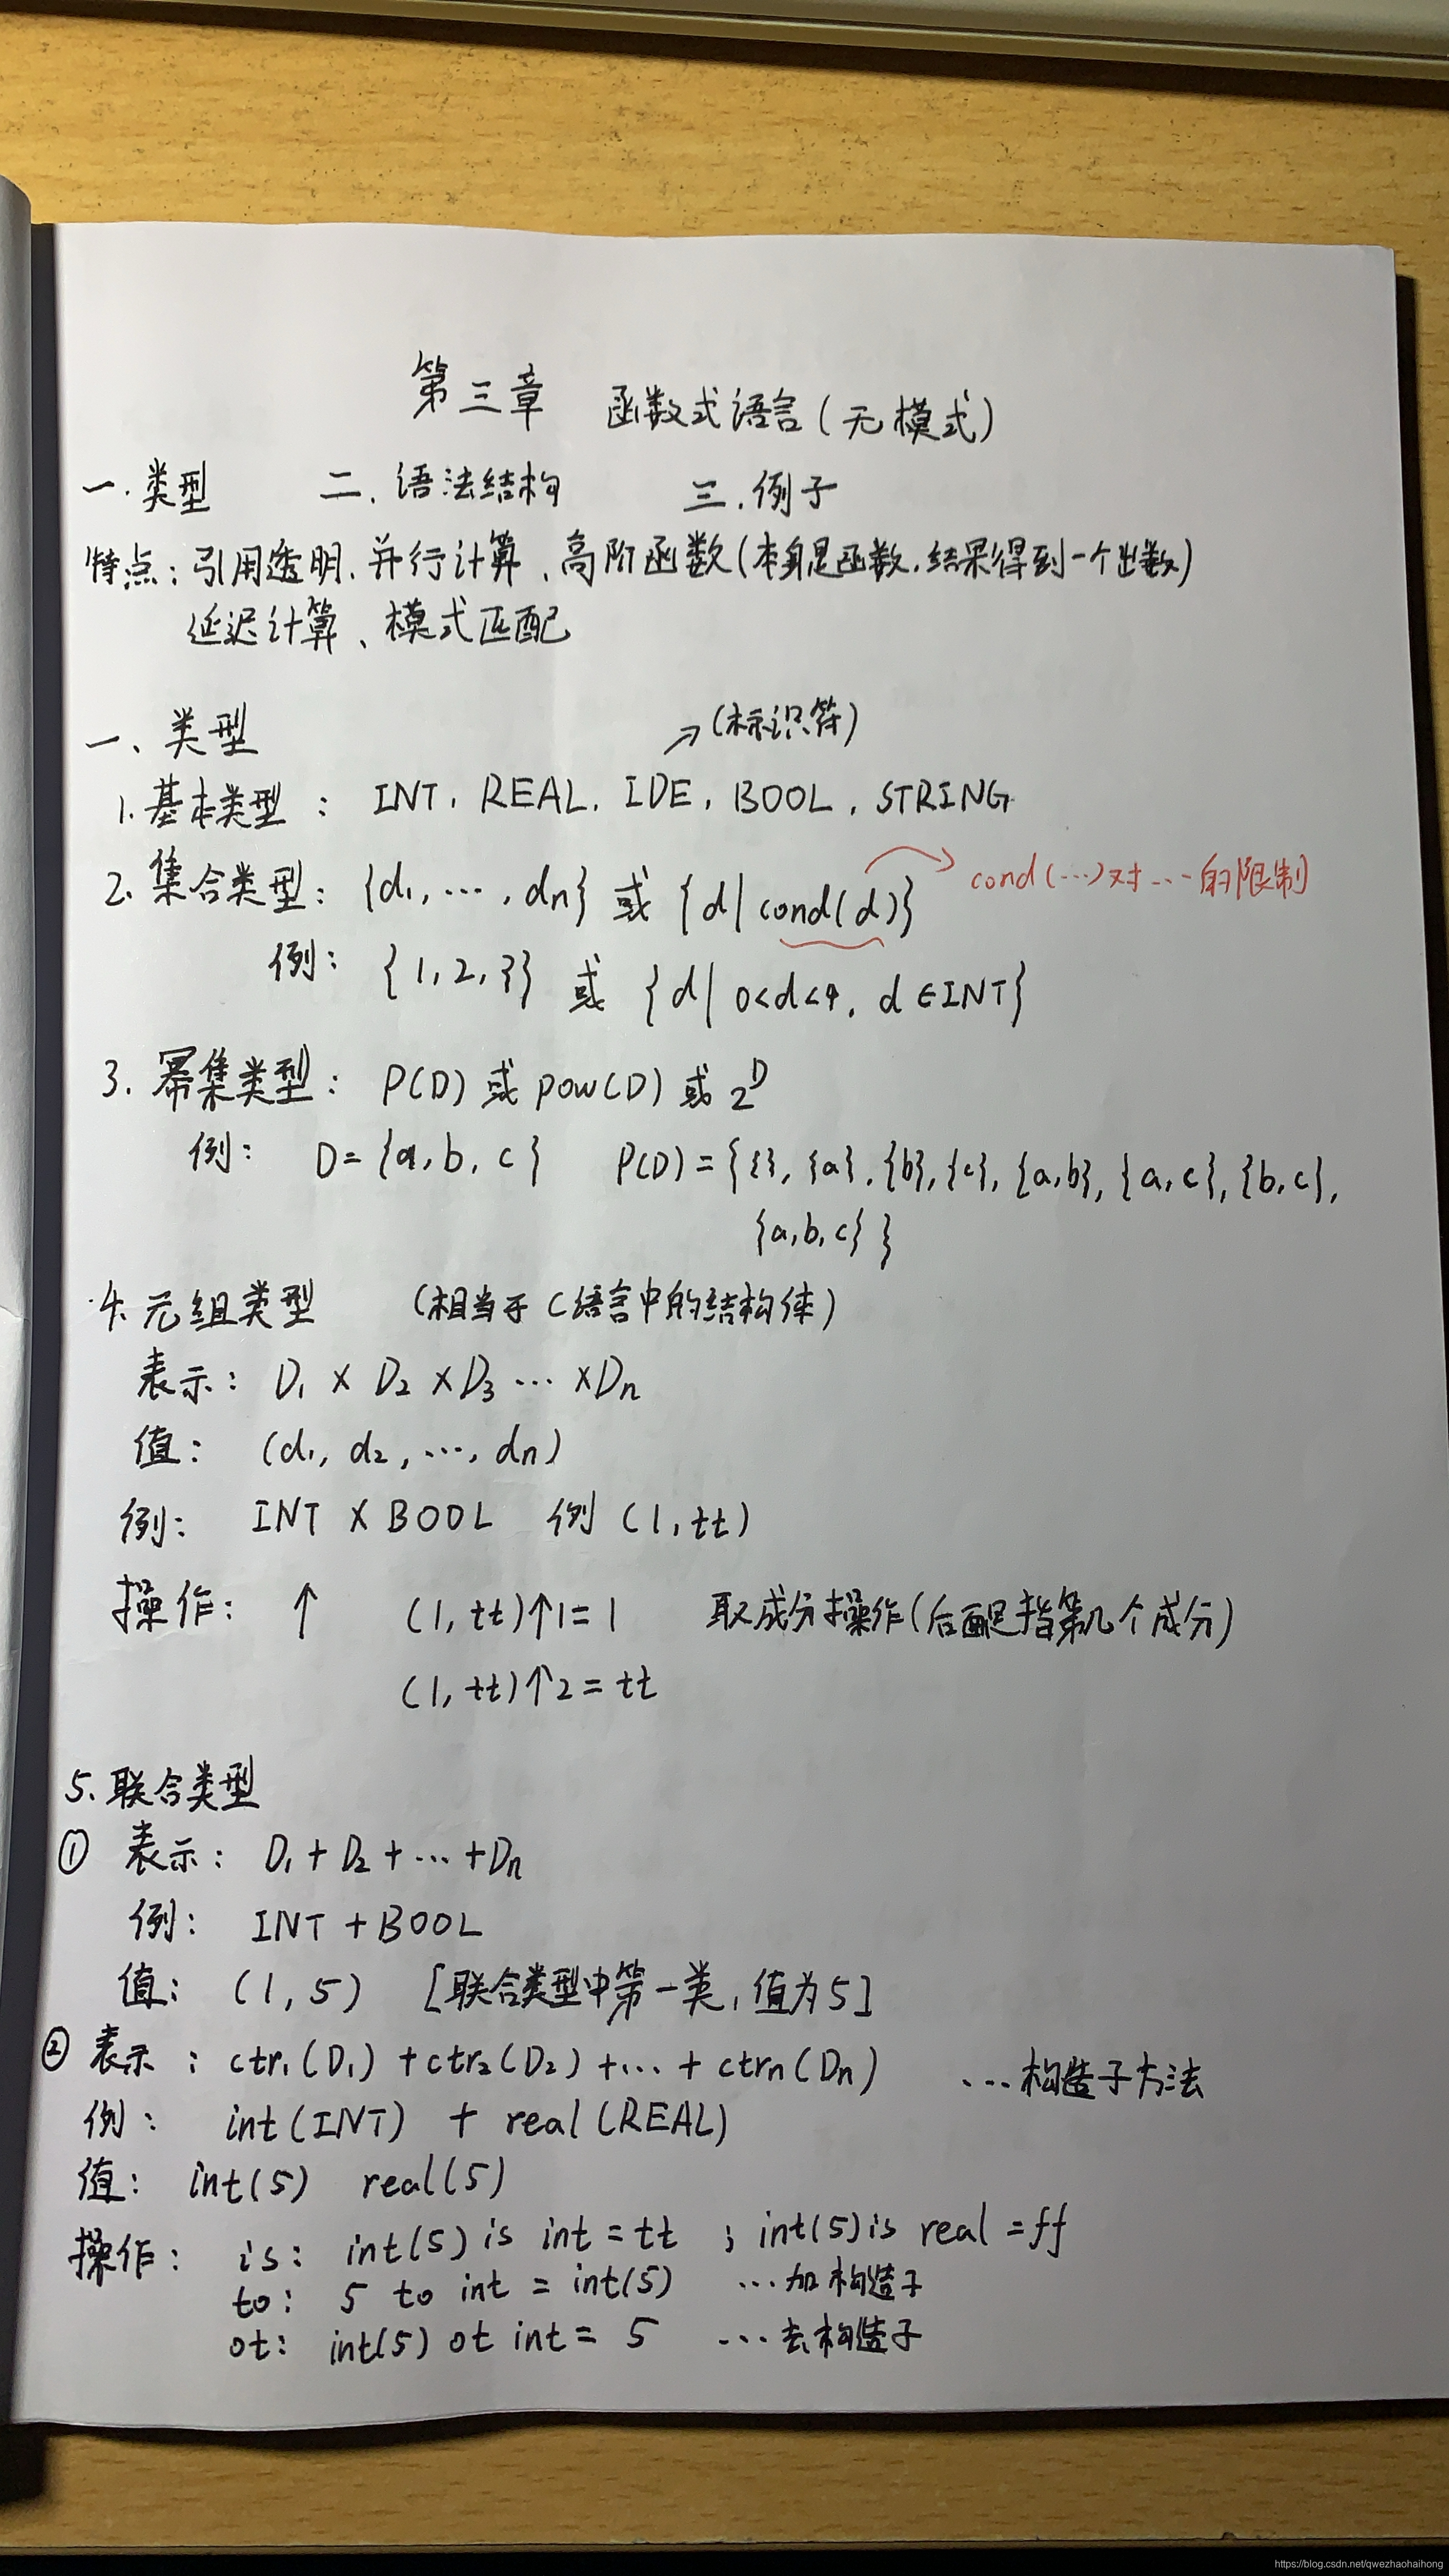 第三章 函数式语言(无模式)
一.类型 二.语法结构 三.例子
特点:引用透明、并行计算、高阶函数(本身是函数,结果得到一个函数)
延迟计算、模式匹配
一、类型
→(标识符)
1.基本类型: INT, REAL, IDE, BOOL, STRING
2.集合类型:{d₁,…,dn} 或 {d|cond(d)} cond(…)对…的限制
例:{1,2,3} 或 {d|0<d<4, d∈INT}
3.幂集类型: P(D) 或 pow(D) 或 2ᴰ
例: D={a,b,c} P(D)={{},{a},{b},{c},{a,b},{a,c},{b,c},
{a,b,c}}
4.元组类型 (相当于C语言中的结构体)
表示: D₁×D₂×D₃…×Dn
值: (d₁,d₂,…,dn)
例: INT×BOOL 例(1,tt)
操作: ↑ (1,tt)↑1=1 取成分操作(后面是指第几个成分)
(1,tt)↑2=tt
5.联合类型
① 表示: D₁+D₂+…+Dn
例: INT+BOOL
值: (1,5) [联合类型中第一类,值为5]
② 表示:ctr₁(D₁)+ctr₂(D₂)+…+ctrn(Dn) …构造子方法
例: int(INT) + real(REAL)
值: int(5) real(5)
操作: is: int(5) is int=tt ; int(5) is real=ff
to: 5 to int = int(5) …加构造子
ot: int(5) ot int = 5 …去构造子
https://blog.csdn.net/qwezhaohaihong